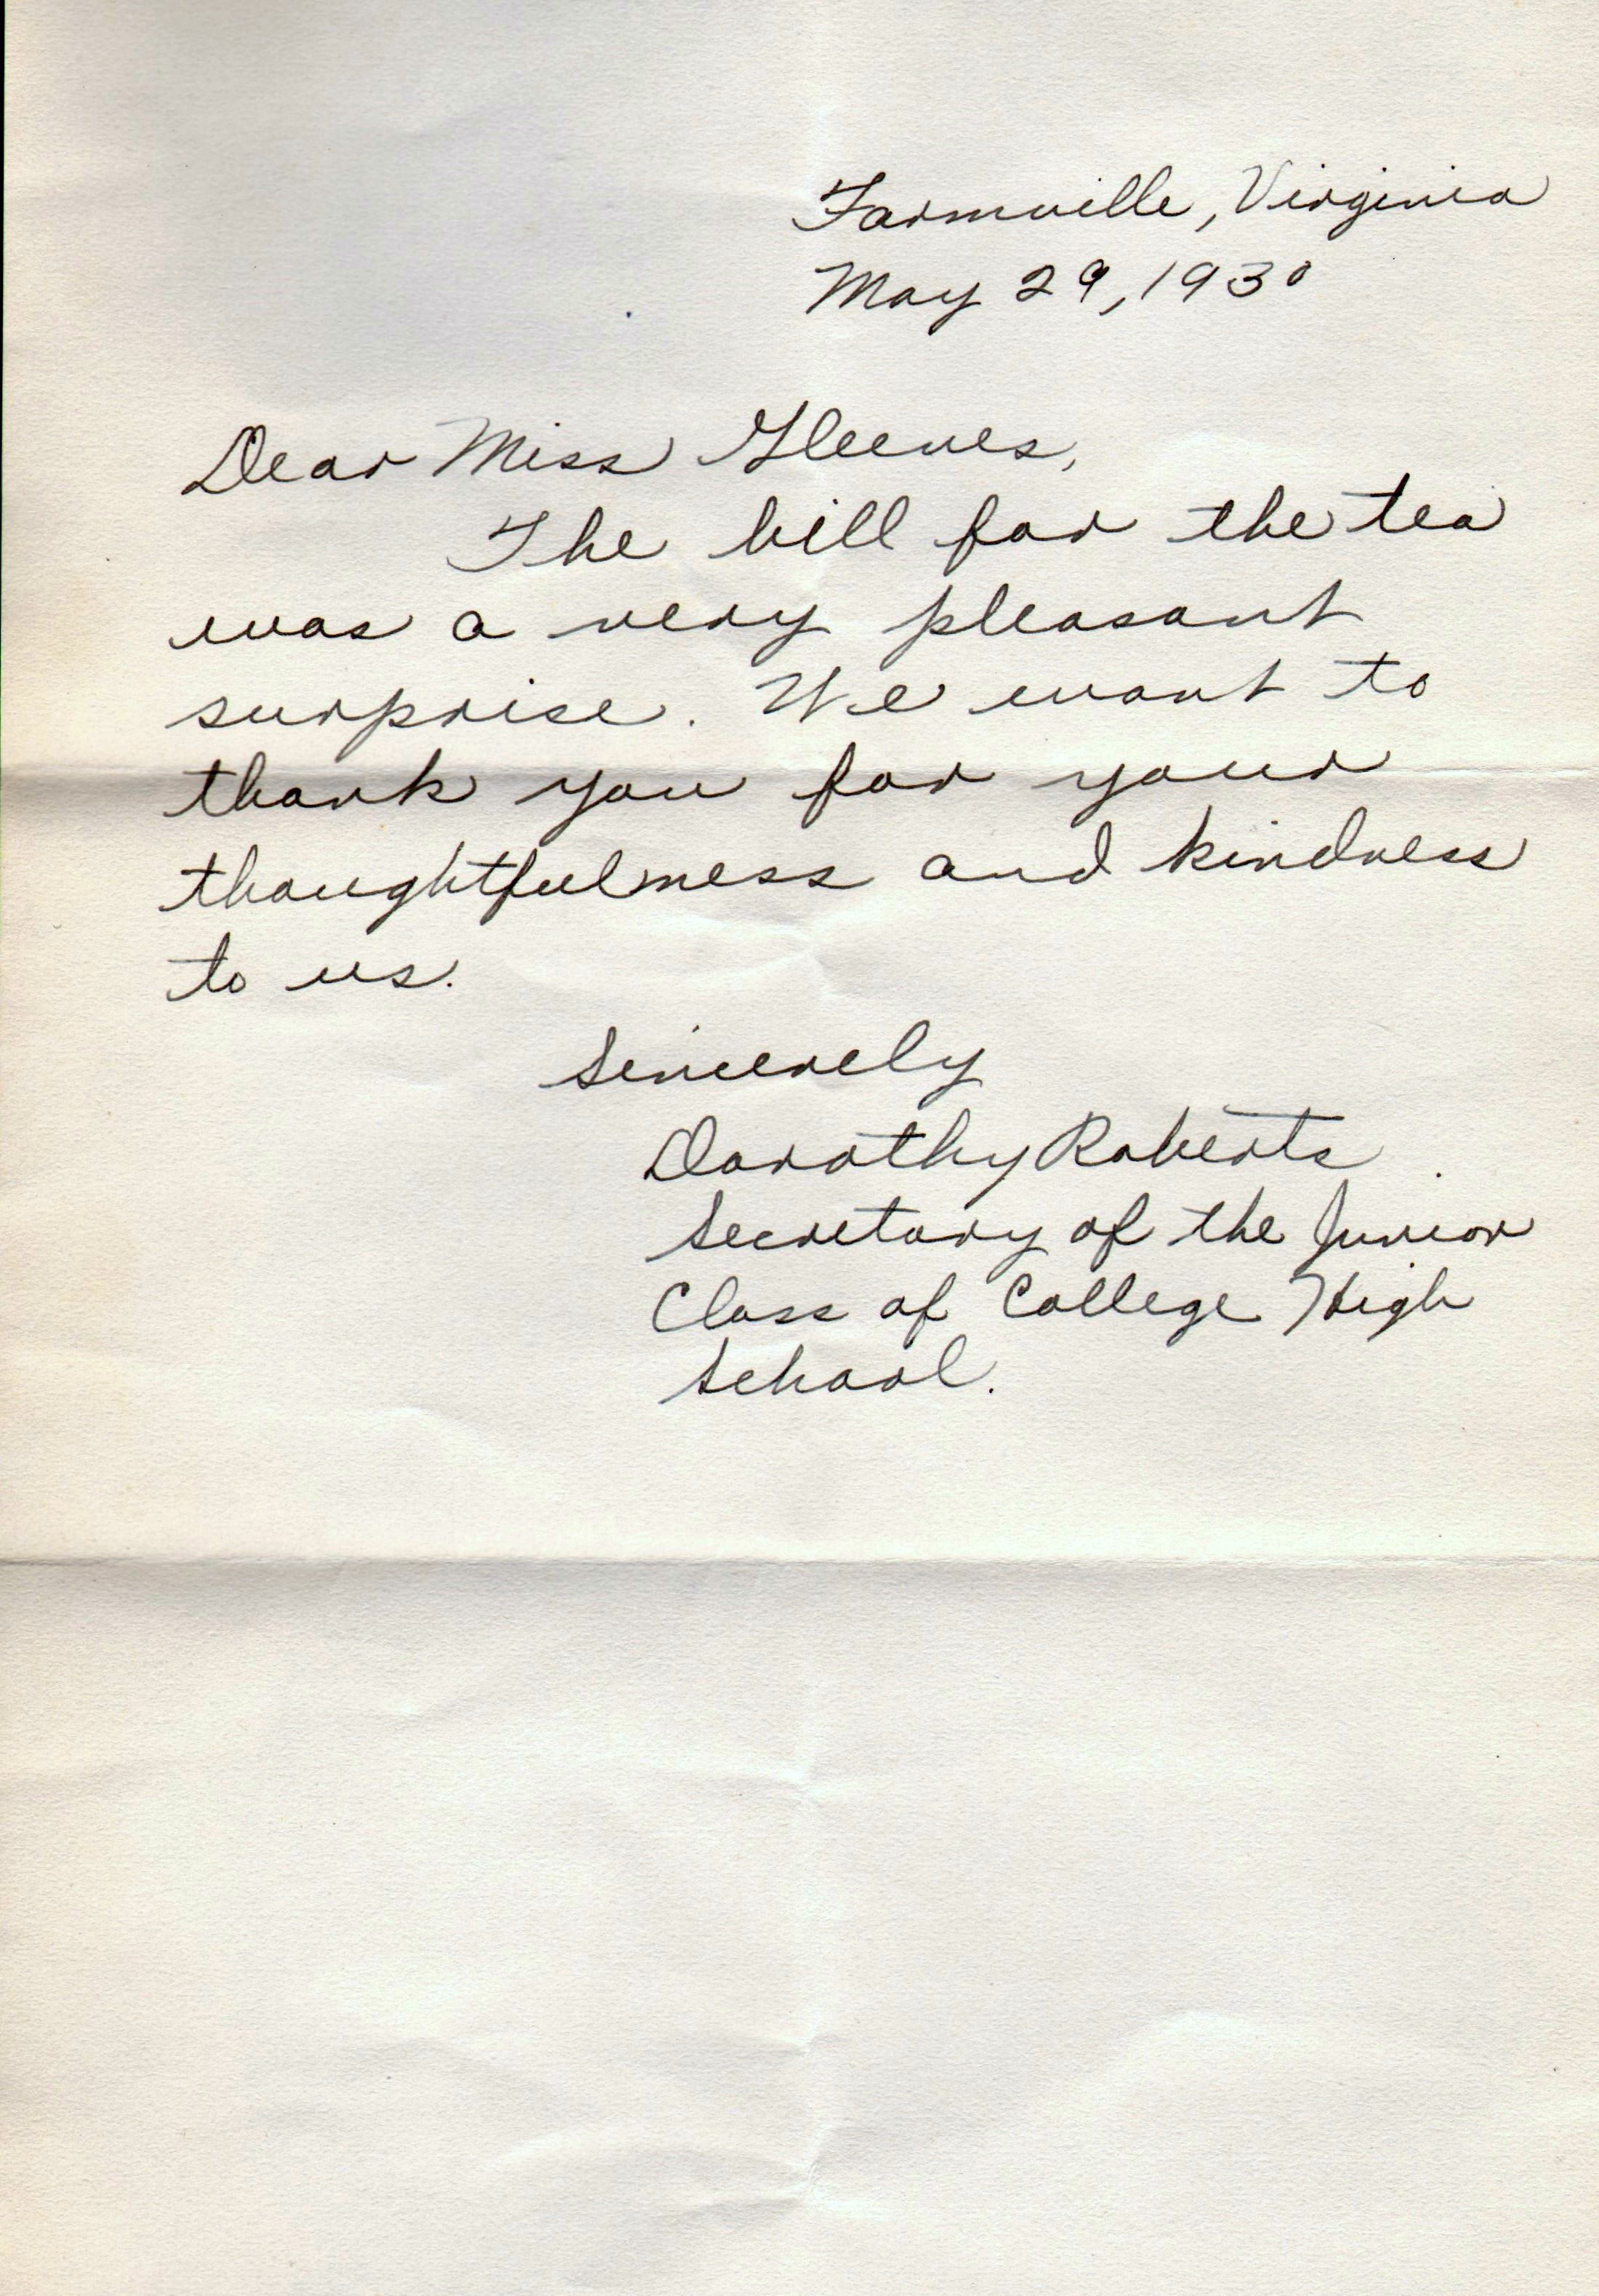 Farmville, Virginia
May 29, 1930
Dear Miss Gleeves,
The bill for the tea
was a very pleasant
surprise. We want to
thank you for your
thoughtfulness and kindness
to us.
Sincerely
Dorothy Roberts
Secretary of the Junior
Class of College High
School.